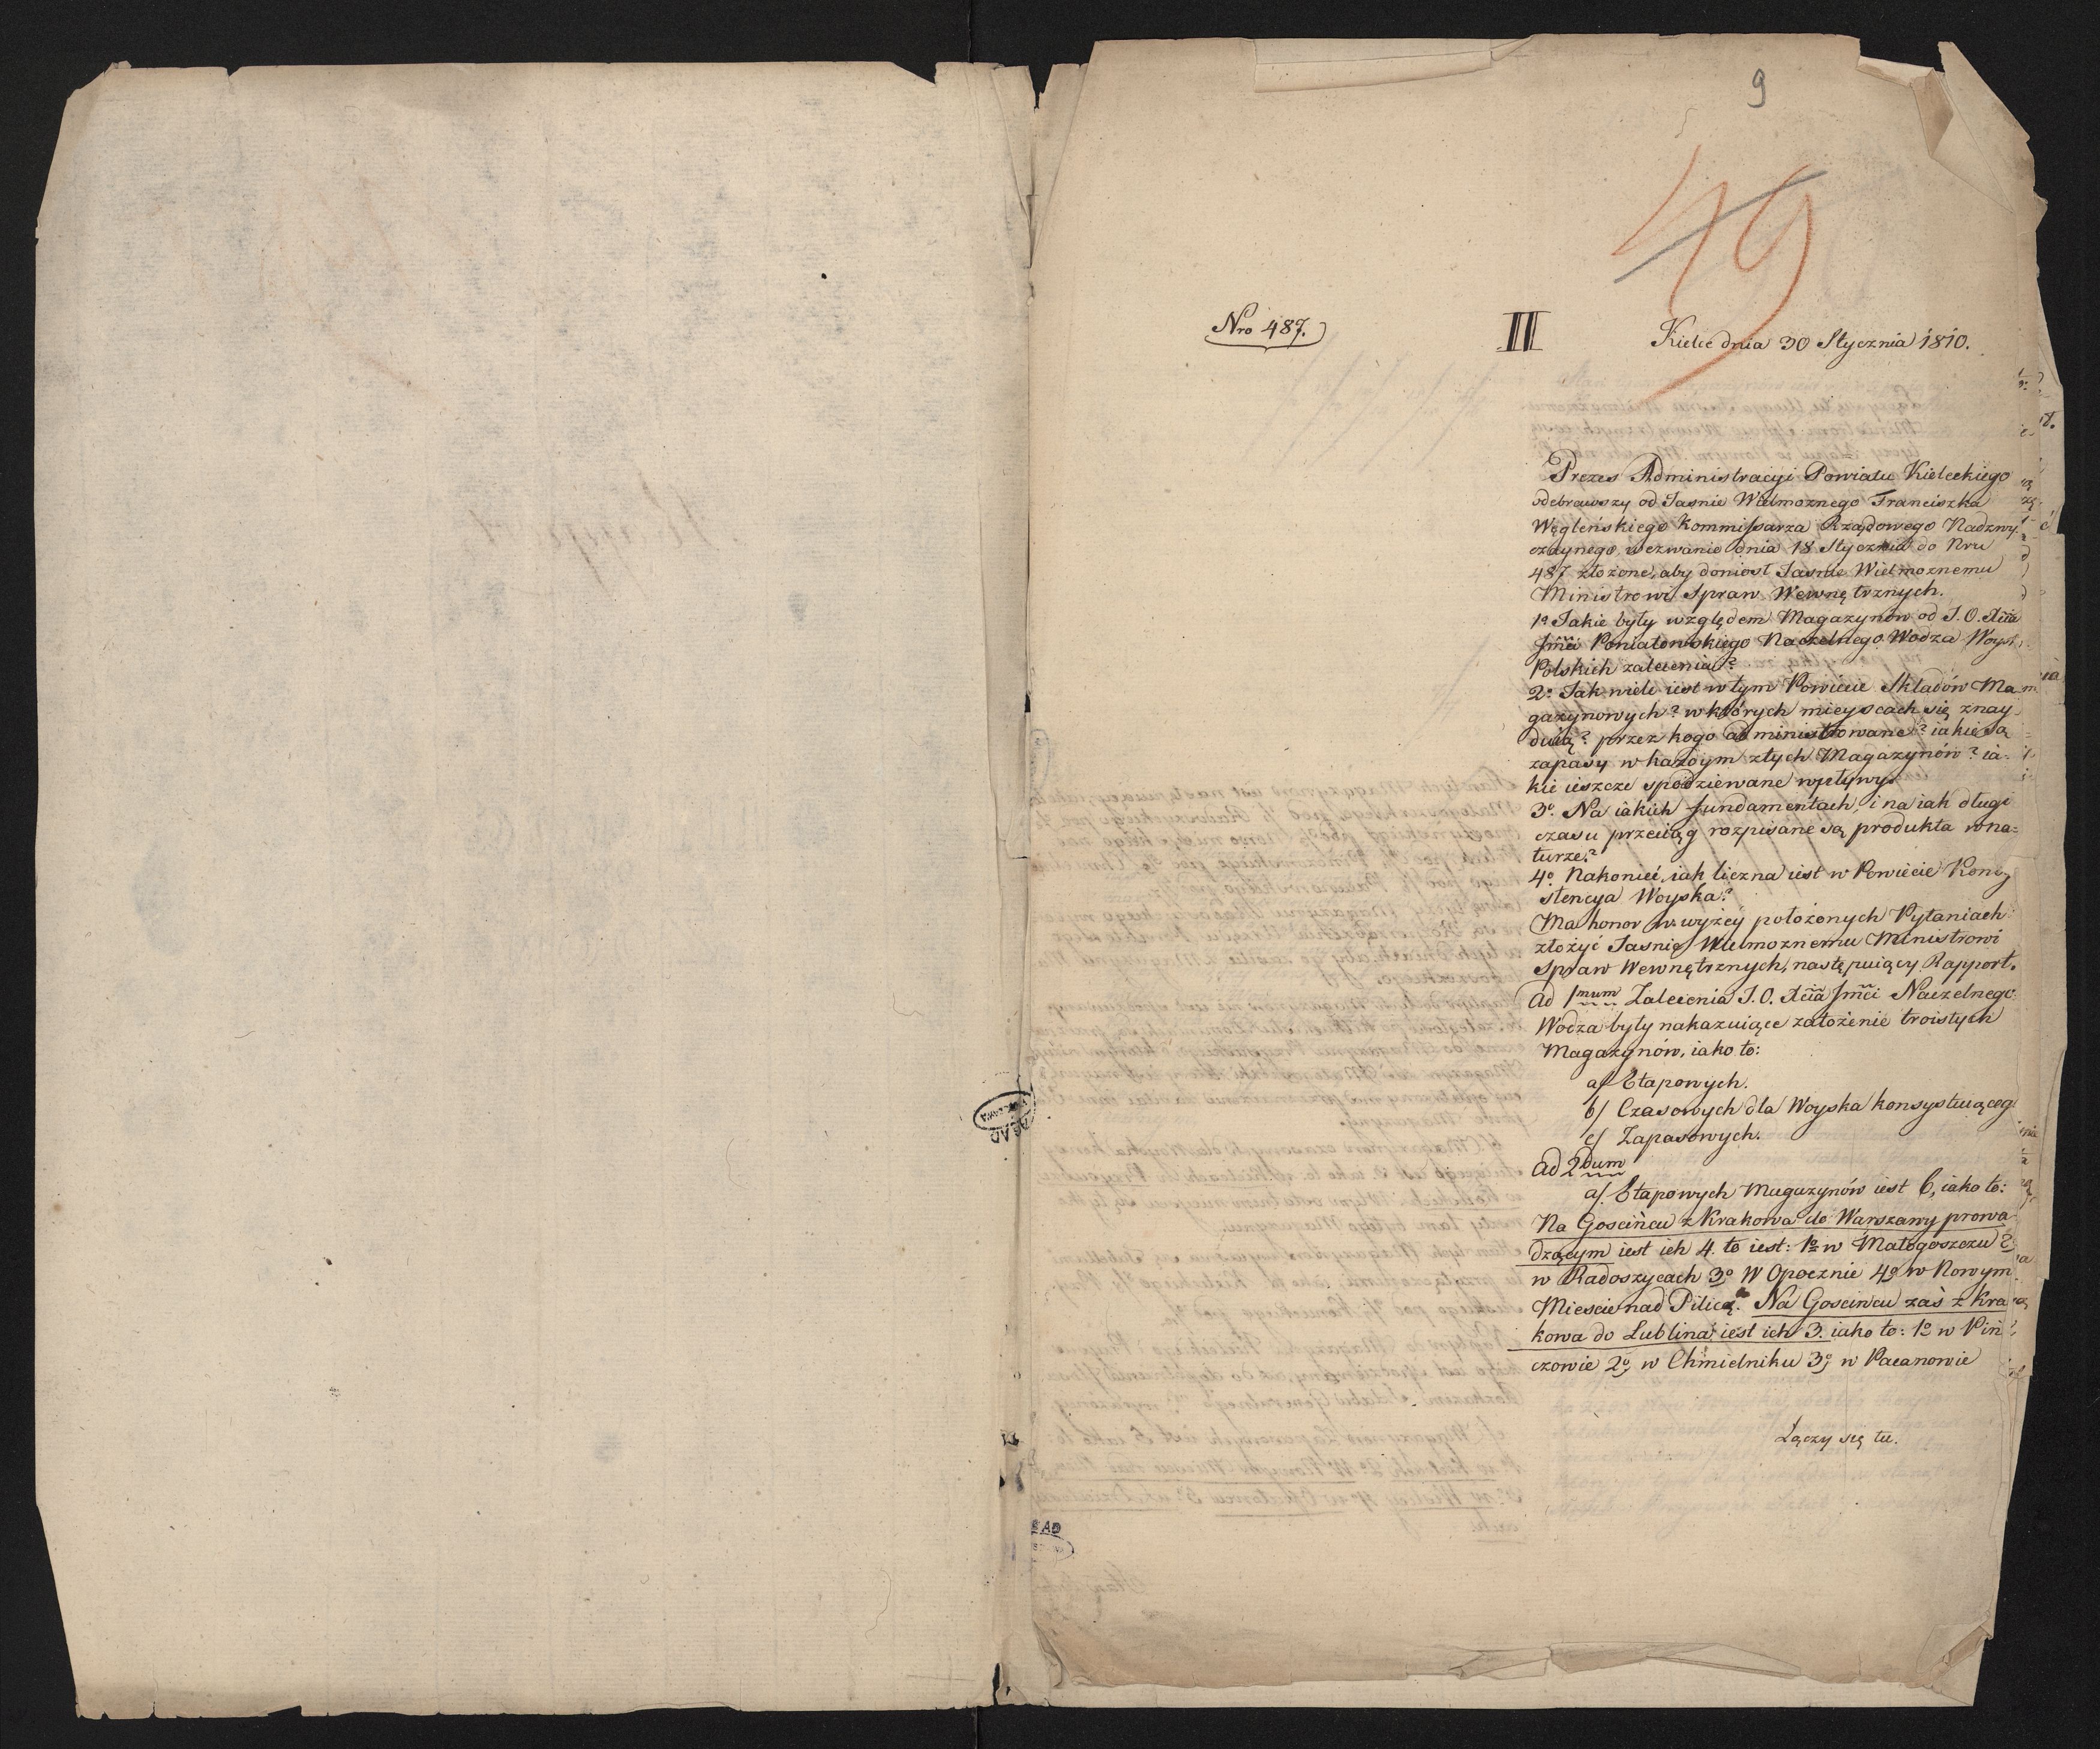 9
49
Nro 487.
II
Kielce dnia 30 Stycznia 1810.
Prezes Administracyi Powiatu Kieleckiego
odebrawszy od Jasnie Wielmoznego Franciszka
Węgleńskiego Kommissarza Rządowego Nadzwy
czaynego wezwanie dnia 18 Stycznia do Nru
487 złożone, aby doniosł Jasnie Wielmoznemu
Ministrowi Spraw Wewnętrznych.
1o Jakie były względem Magazynów od J. O. Xcia
Jmci Poniatowskiego Naczelnego Wodza Woysk
Polskich zalecenia?
2o Jak wiele iest w tym Powiecie Składów Ma
gazynowych? w których mieyscach się znay
duią? przez kogo administrowane? iakie są
zapasy w każdym z tych Magazynów? ia-
kie ieszcze spodziewane wpływy?
3o Na iakich fundamentach, i na iak długi
czasu przeciąg rozpisane są produkta w na=
turze?
4o Nakoniec, iak liczna iest w Powiecie Konsy
stencya Woyska?
Ma honor w wyzey położonych Pytaniach
złożyć Jasnie Wielmoznemu Ministrowi
Spraw Wewnętrznych, następuiący Rapport.
Ad 1mum Zalecenia J. O. Xcia Jmci Naczelnego
Wodza były nakazuiące założenie troistych
Magazynów, iako to:
a/ Etapowych.
b/ Czasowych dla Woyska konsystuiącego
c/ Zapasowych.
Ad 2dum
a/ Etapowych Magazynów iest 6, iako to:
Na Goscińcu z Krakowa do Warszawy prowa
dzącym iest ich 4. to iest: 1o w Małogoszczu 2o
w Radoszycach 3o W Opocznie 4o w Nowym
Miescie nad Pilicą. Na Goscincu zaś z Kra
kowa do Lublina iest ich 3. iako to: 1o w Piń
czowie 2o w Chmielniku 3o w Pacanowie
Łączy się tu.
AGAD